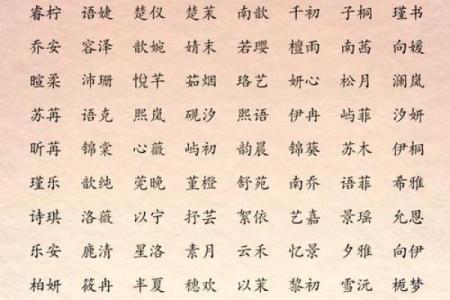 睿柠 语婕 楚仪 楚茉 南歆 千初 子桐 瑾书
乔安 容泽 歆婉 婧末 若璎 檀雨 南茜 向媛
暄柔 沛珊 悦芊 茹烟 珞艺 妍心 松月 澜岚
苏苒 语克 熙岚 砚汐 熙语 伊冉 屿菲 汐妍
昕苒 锦棠 心薇 屿初 韵晨 锦葵 苏木 伊桐
瑾乐 歆纯 莞晚 堇橙 舒苑 南乔 语菲 希雅
诗琪 洛薇 以宁 抒芸 絮依 艺嘉 景瑶 允恩
乐安 鹿清 星洛 素月 云禾 忆景 夕雅 向伊
柏妍 筱冉 半夏 穗欢 以茉 黎初 雪沅 栀梦